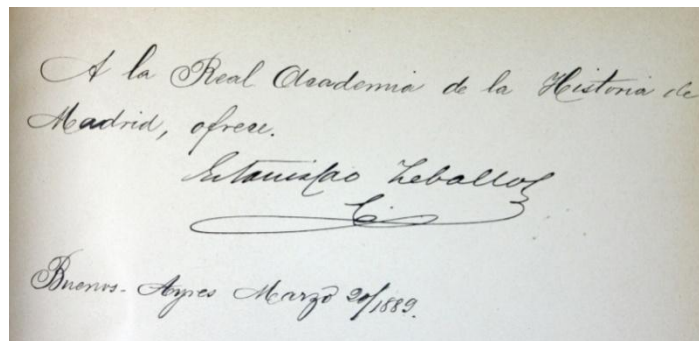 A la Real Academia de la Historia de
Madrid, ofrece.
Estanislao Zeballos
Buenos-Ayres Marzo 20/1889.